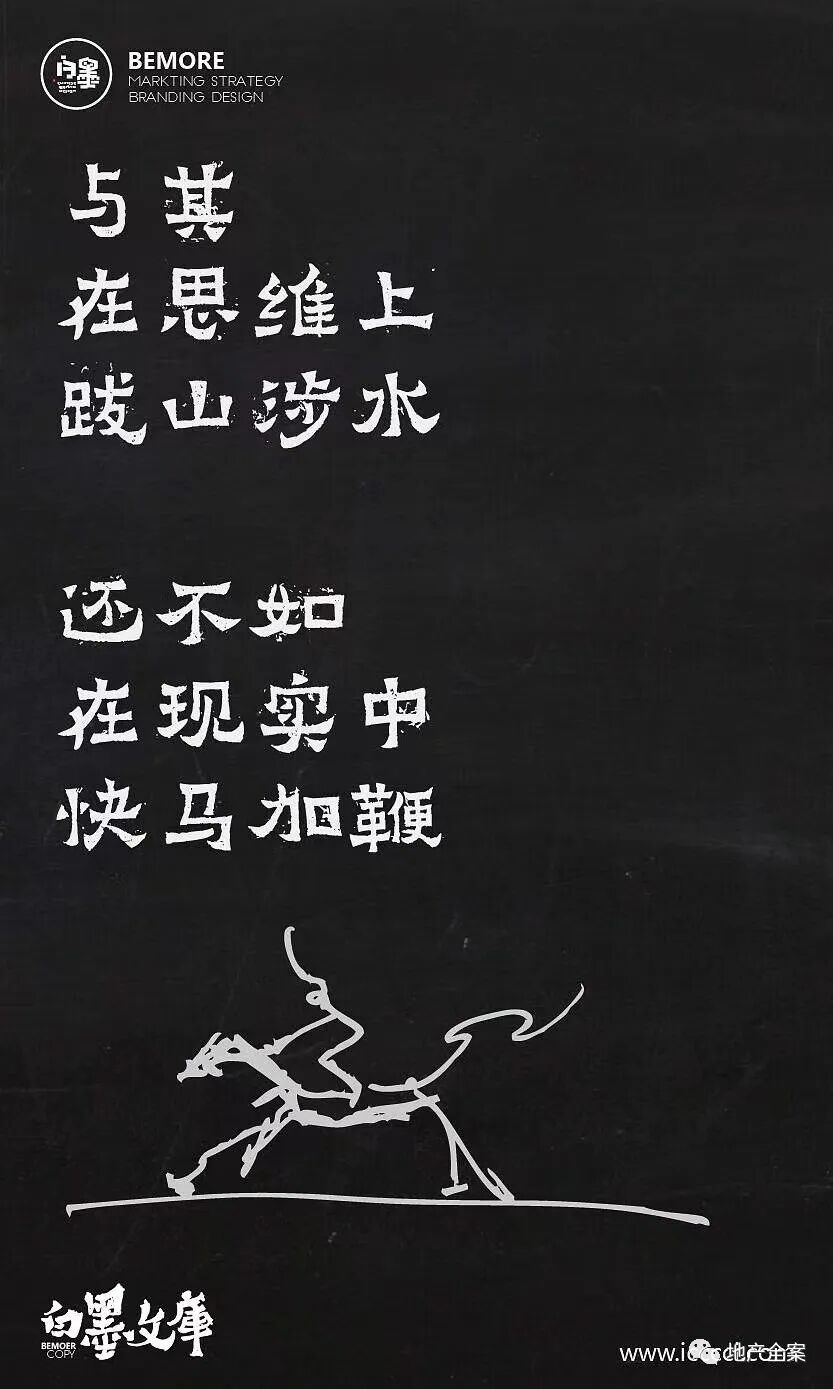 白墨
BEMORE
MARKTING STRATEGY
BRANDING DESIGN
与其
在思维上
跋山涉水
还不如
在现实中
快马加鞭
白墨文庫
BEMOER
COPY
地产全案